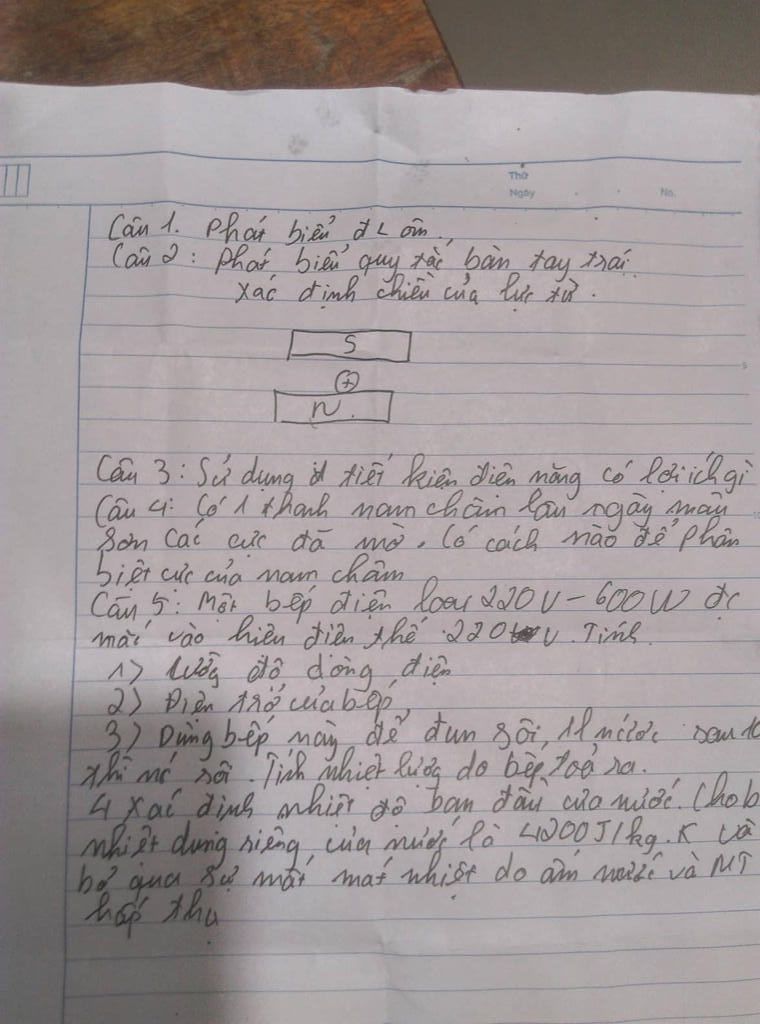 Thứ
Ngày
No.
Câu 1. Phát biểu đL ôm.
Câu 2: Phát biểu quy tắc bàn tay trái
xác định chiều của lực từ.
S
+
N
Câu 3: Sử dụng tiết kiện điện năng có lợi ích gì
Câu 4: Có 1 thanh nam châm lâu ngày màu
sơn các cực đã mờ. Có cách nào để phân
biệt cực của nam châm
Câu 5: Một bếp điện loại 220V - 600W đc
mắc vào hiệu điện thế 220 V. Tính
1) cường độ dòng điện
2) Điện trở của bếp
3) Dùng bếp này để đun sôi 1l nước sau 10
thì nó sôi. Tính nhiệt lượng do bếp toả ra.
4 Xác định nhiệt độ ban đầu của nước. Cho b
nhiệt dung riêng của nước là 4200J/kg.K và
bỏ qua sự mất mát nhiệt do ấm nước và MT
hấp thụ